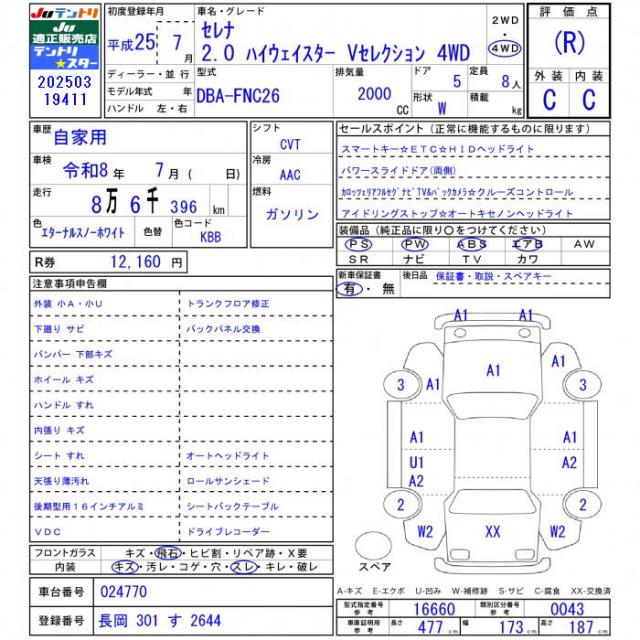 Juテントリ
Ju
適正販売店
テントリ
★スター
202503
19411
初度登録年月
平成25年 7月
ディーラー・並行
モデル年式 年
ハンドル 左・右
車名・グレード
セレナ
2.0 ハイウェイスター Vセレクション 4WD
2WD
・
4WD
型式
DBA-FNC26
排気量
2000
CC
ドア
5
定員
8人
形状
W
積載
kg
評価点
(R)
外装 内装
C C
車歴
自家用
車検
令和8年 7月 ( 日)
走行
8万6千396 km
色
エターナルスノーホワイト
色替
色コード
KBB
シフト
CVT
冷房
AAC
燃料
ガソリン
R券 12,160 円
セールスポイント (正常に機能するものに限ります)
スマートキー☆ETC☆HIDヘッドライト
パワースライドドア(両側)
カロッツェリアフルセグナビTV&バックカメラ☆クルーズコントロール
アイドリングストップ☆オートキセノンヘッドライト
装備品 (純正品に限り〇をつけてください)
PS PW ABS エアB AW
SR ナビ TV カワ
新車保証書
有・無
後日品 保証書・取説・スペアキー
注意事項申告欄
外装 小A・小U トランクフロア修正
下廻り サビ バックパネル交換
バンパー 下部キズ
ホイール キズ
ハンドル すれ
内張り キズ
シート すれ オートヘッドライト
天張り薄汚れ ロールサンシェード
後期型用16インチアルミ シートバックテーブル
VDC ドライブレコーダー
フロントガラス キズ・飛石・ヒビ割・リペア跡・X要
内装 キズ・汚レ・コゲ・穴・スレ・キレ・破レ
車台番号 024770
登録番号 長岡 301 す 2644
A1 A1
3 A1 A1 A1 3
A1 A1
U1 A2
A2
2 2
W2 XX W2
スペア
A-キズ E-エクボ U-凹み W-補修跡 S-サビ C-腐食 XX-交換済
型式指定番号 16660 類別区分番号 0043
車庫証明用 長さ 477 cm 幅 173 cm 高さ 187 cm